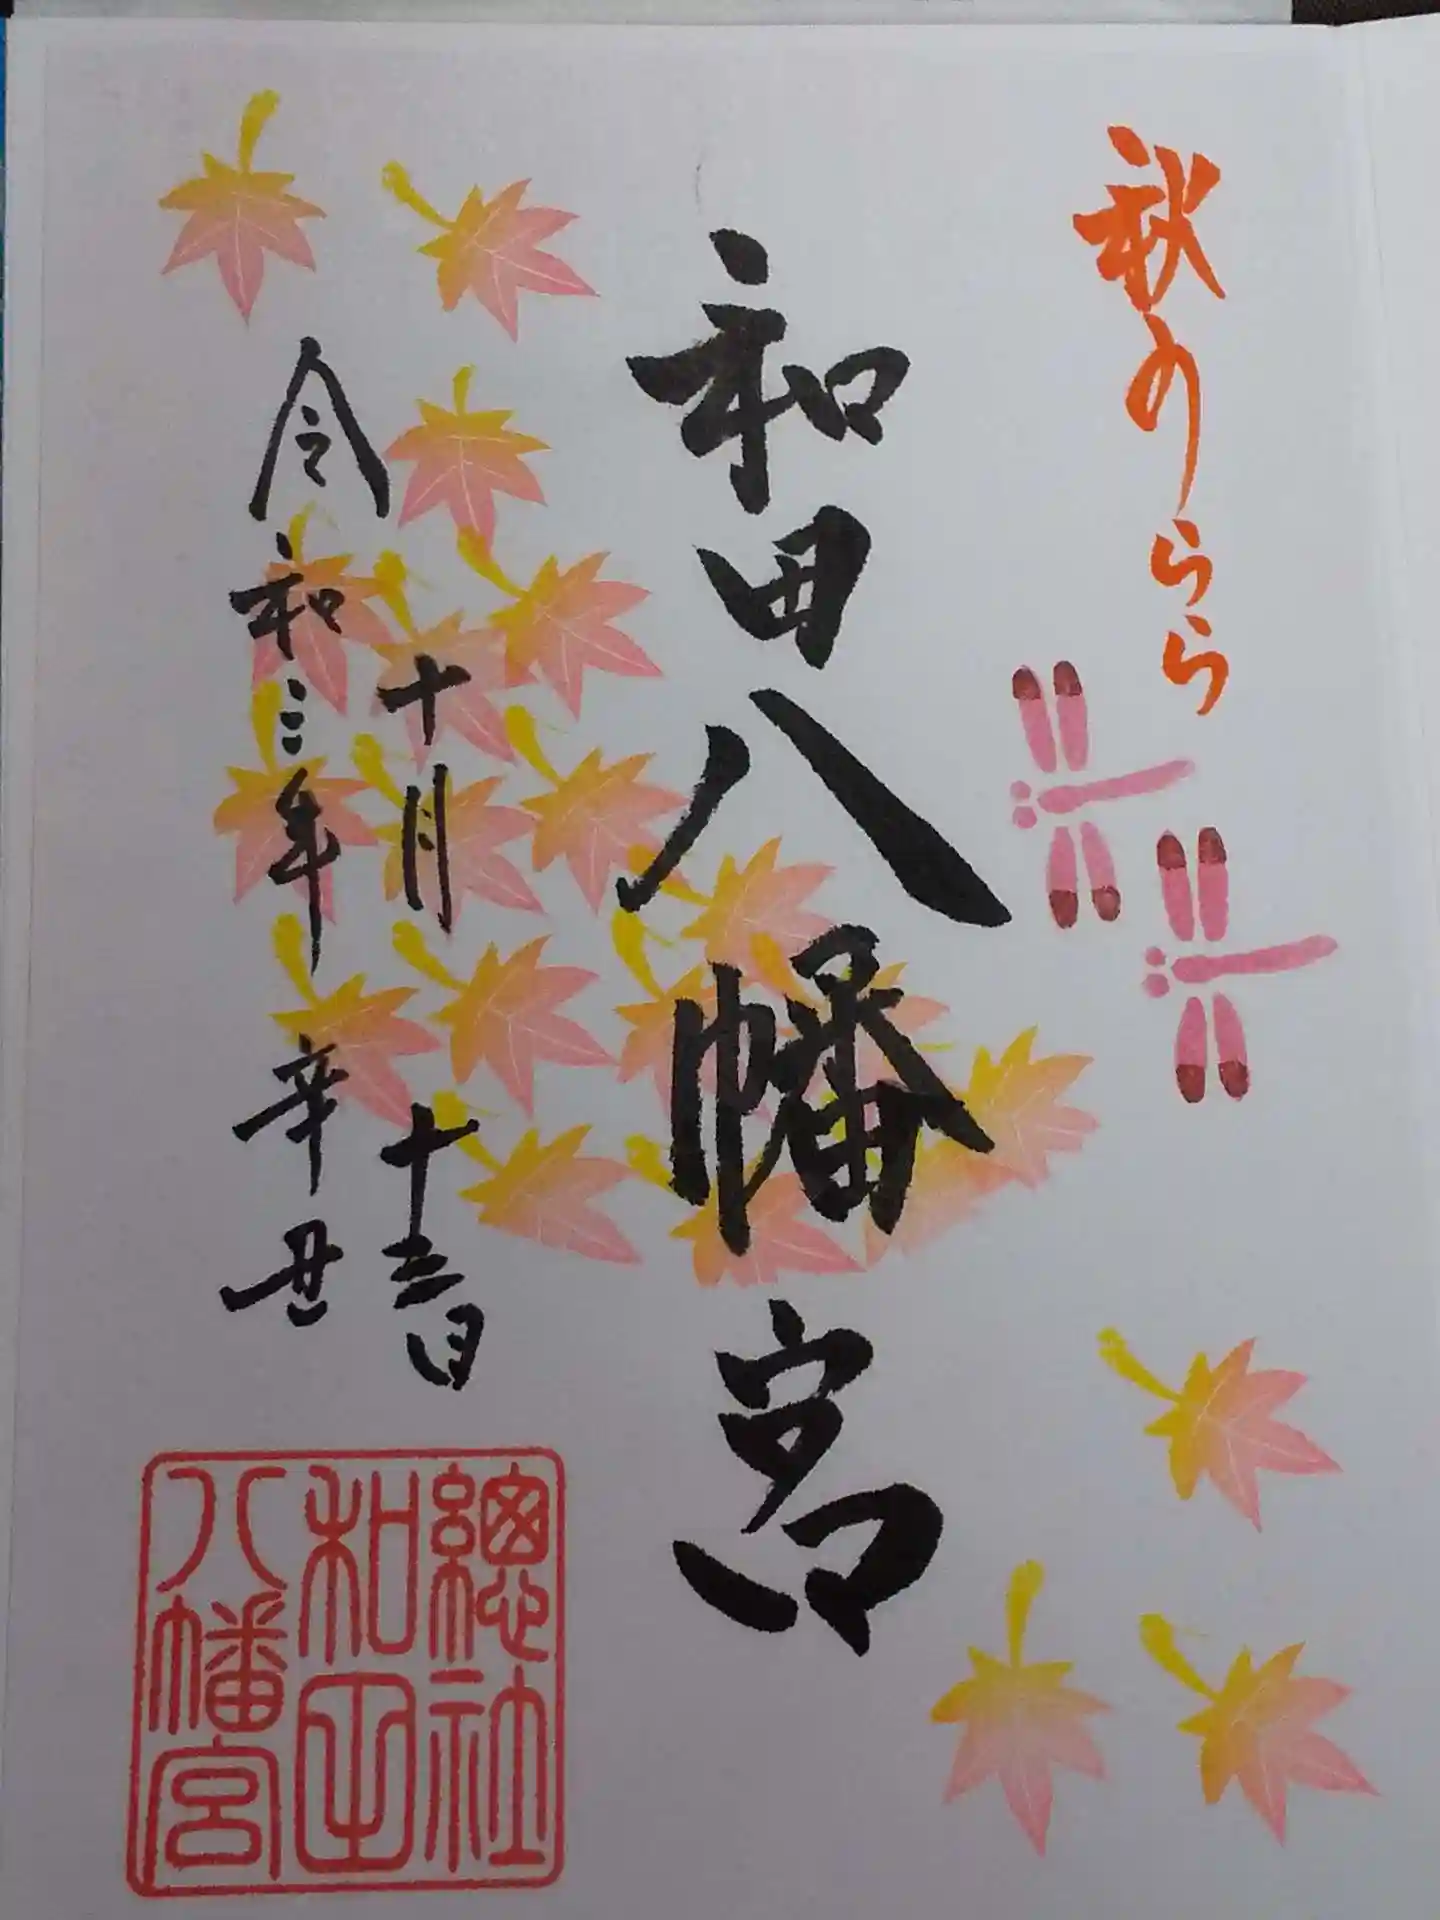 秋のうらら
和田八幡宮
十月十三日
令和三年 辛丑
總社
和田
八幡宮